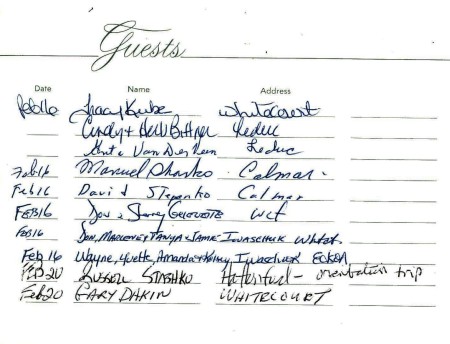 Guests
Date Name Address
Feb16 Tracy Kube Whitecourt
Cindy + Leduc
Van Der Veen Leduc
Feb 16 Manuel Calmar
Feb 16 David Stepanko Calmar
FEB 16 Don + Wct
FEB 16 Don, Marlene, Tanya + Jamie Iwaschuk Whtct.
Feb 16 Wayne, Yvette, Amanda + Iwaschuk
FEB 20 RUSSELL STASHKO - orientation trip
Feb 20 GARY DAKIN WHITECOURT